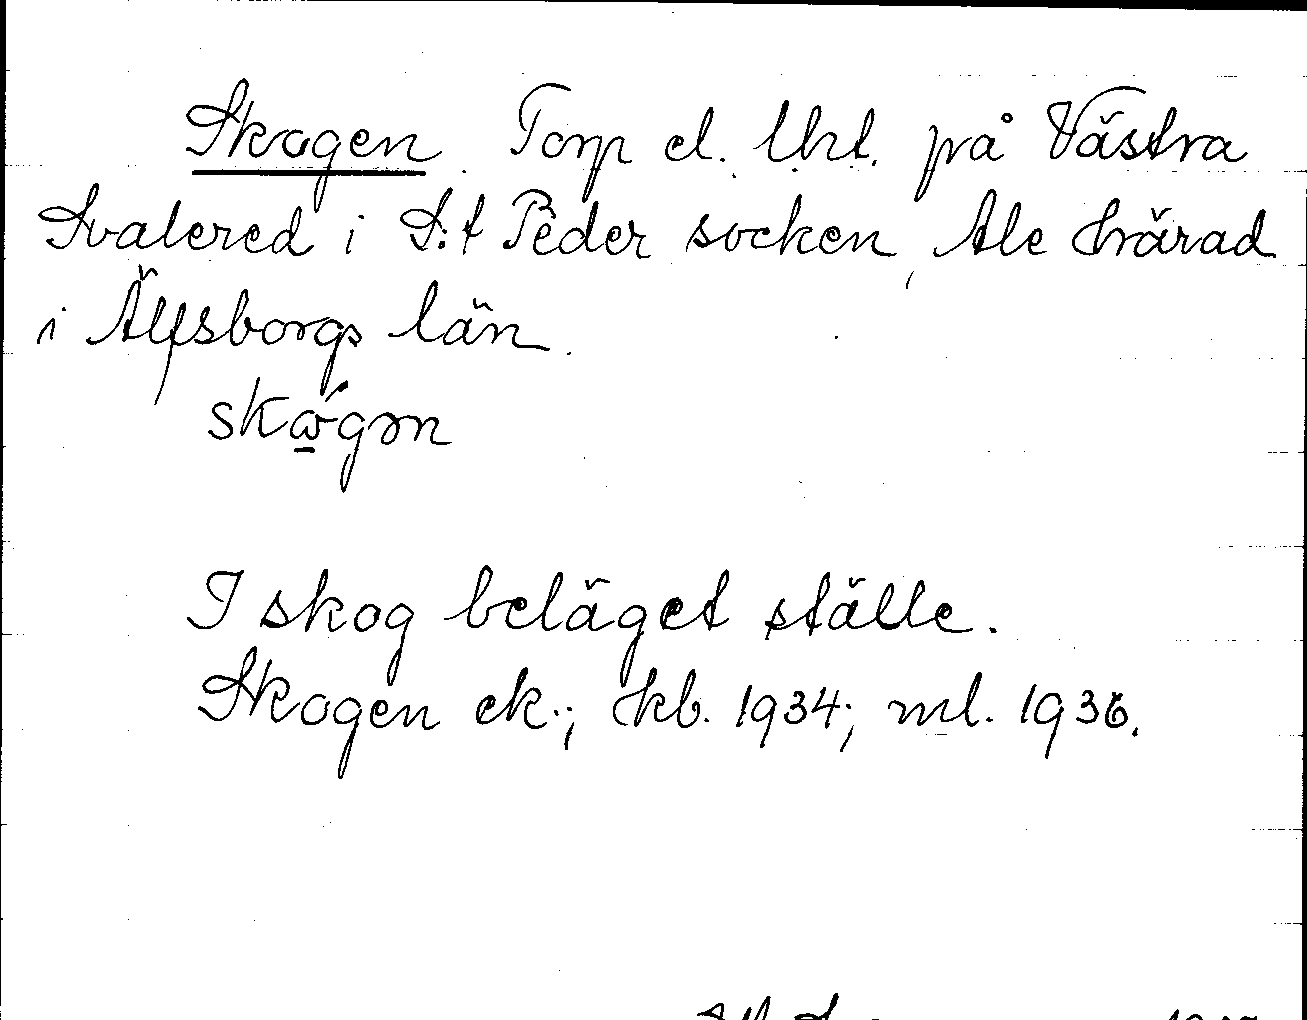 Skogen Torp el. lht. på Västra
Svalered i S:t Peder socken, Ale härad
i Älfsborgs län.
skώ̲gən
I skog beläget ställe.
Skogen ek.; kb. 1934; ml. 1936.